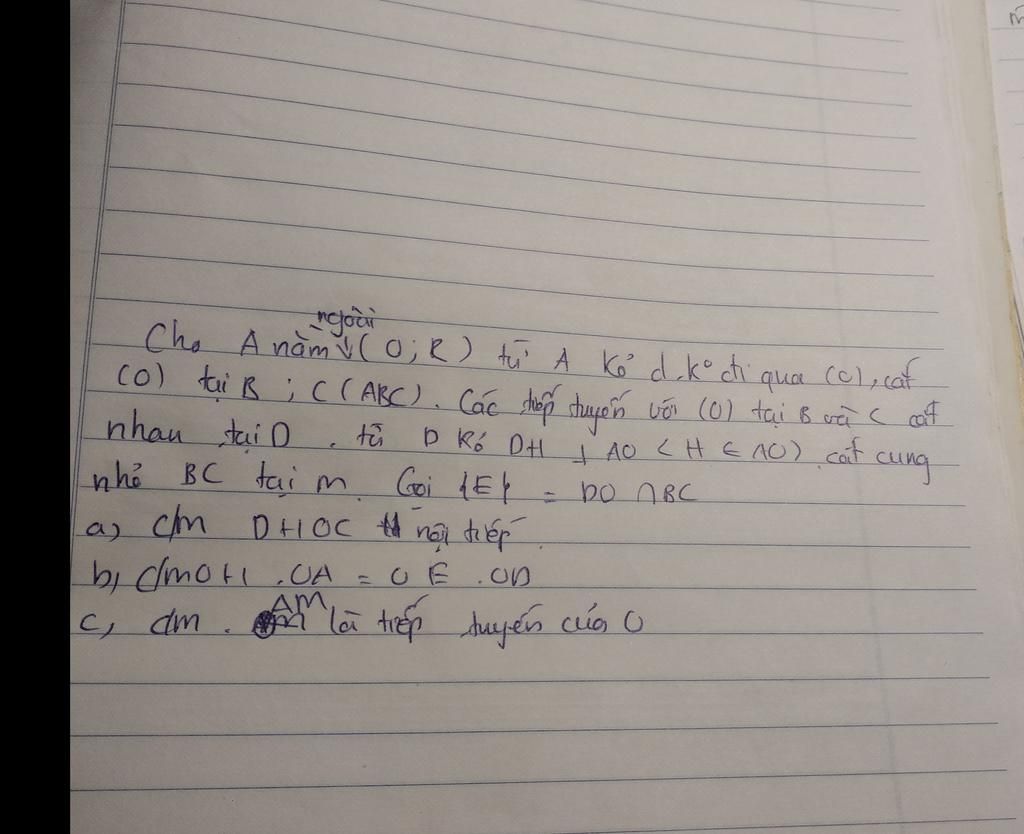 Cho A nằm ngoài (O; R) từ A kẻ d. k° đi qua (O), cắt
(O) tại B ; C (ABC). Các tiếp tuyến với (O) tại B và C cắt
nhau tại D . từ D kẻ DH ⊥ AO < H ∈ AO) cắt cung
nhỏ BC tại M. Gọi {E} = DO ∩ BC
a) c/m DHOC nội tiếp.
b, c/m OH . OA = OE . OD
c, c/m . AM là tiếp tuyến của O